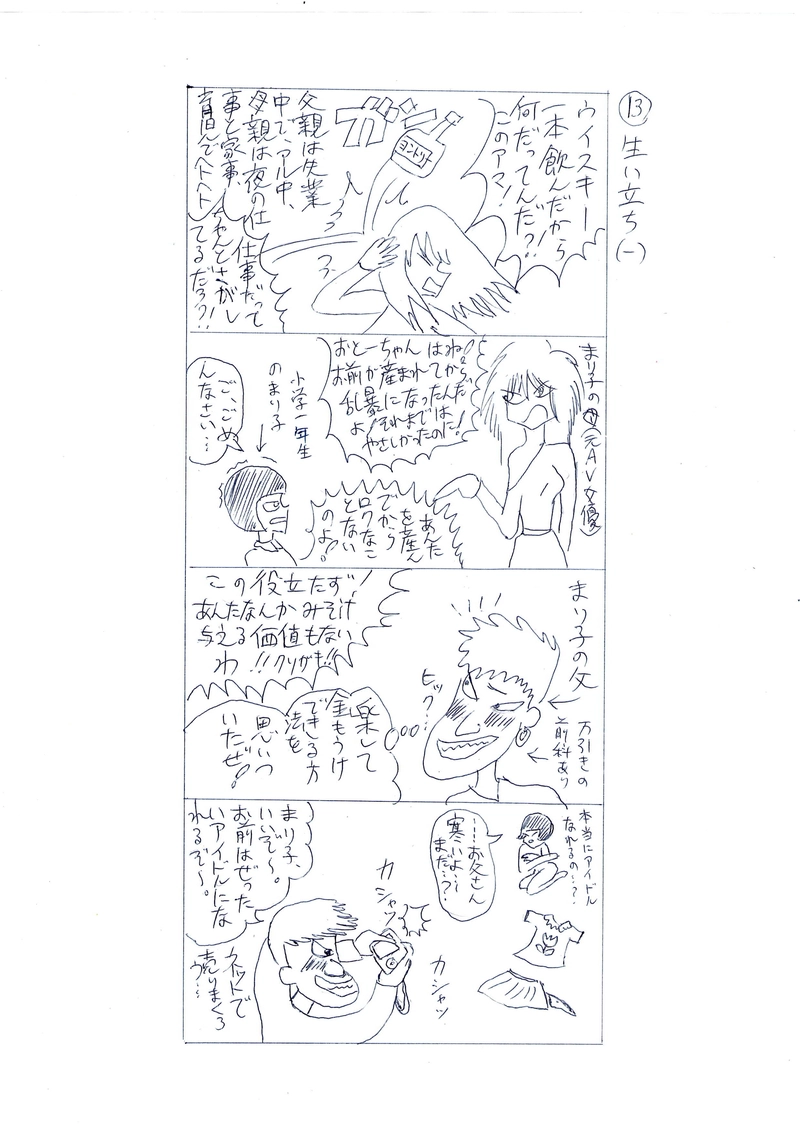 ⑬ 生い立ち(一)
ウイスキー
一本飲んだから
何だってんだ?!
このアマ!
ヨントリー
ガシャ
父親は失業
中でアル中、
母親は夜の仕
事と家事、
育児でヘトヘト
仕事だって
ちゃんとさがし
てるだろ?!!
まり子の母(元AV女優)
おとーちゃんはね!
お前が産まれてから
乱暴になったんだ
よ!それまでは
やさしかったのに!
あんた
を産ん
でから
ロクなこ
とない
のよ!
小学一年生
のまり子
ご、ごめ
んなさい…
まり子の父
万引きの
前科あり
この役立たず!
あんたなんかみそ汁
与える価値もない
わ!!クソガキ!!
ヒック…
楽して
金もうけ
できる方
法を
思いつ
いたぜ!
本当にアイドル
なれるの…?
……お父さん
寒いよ…
まだ…?
カシャッ
カシャッ
まり子、
いいぞ〜。
お前はぜった
いアイドルにな
れるぞ〜。
ネットで
売りまくろ
う…